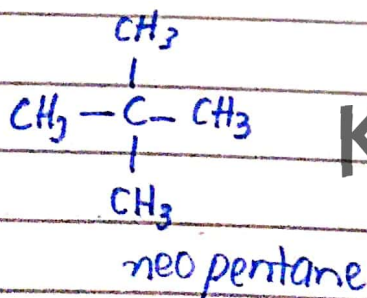 CH3
CH3 – C – CH3
CH3
neo pentane
K